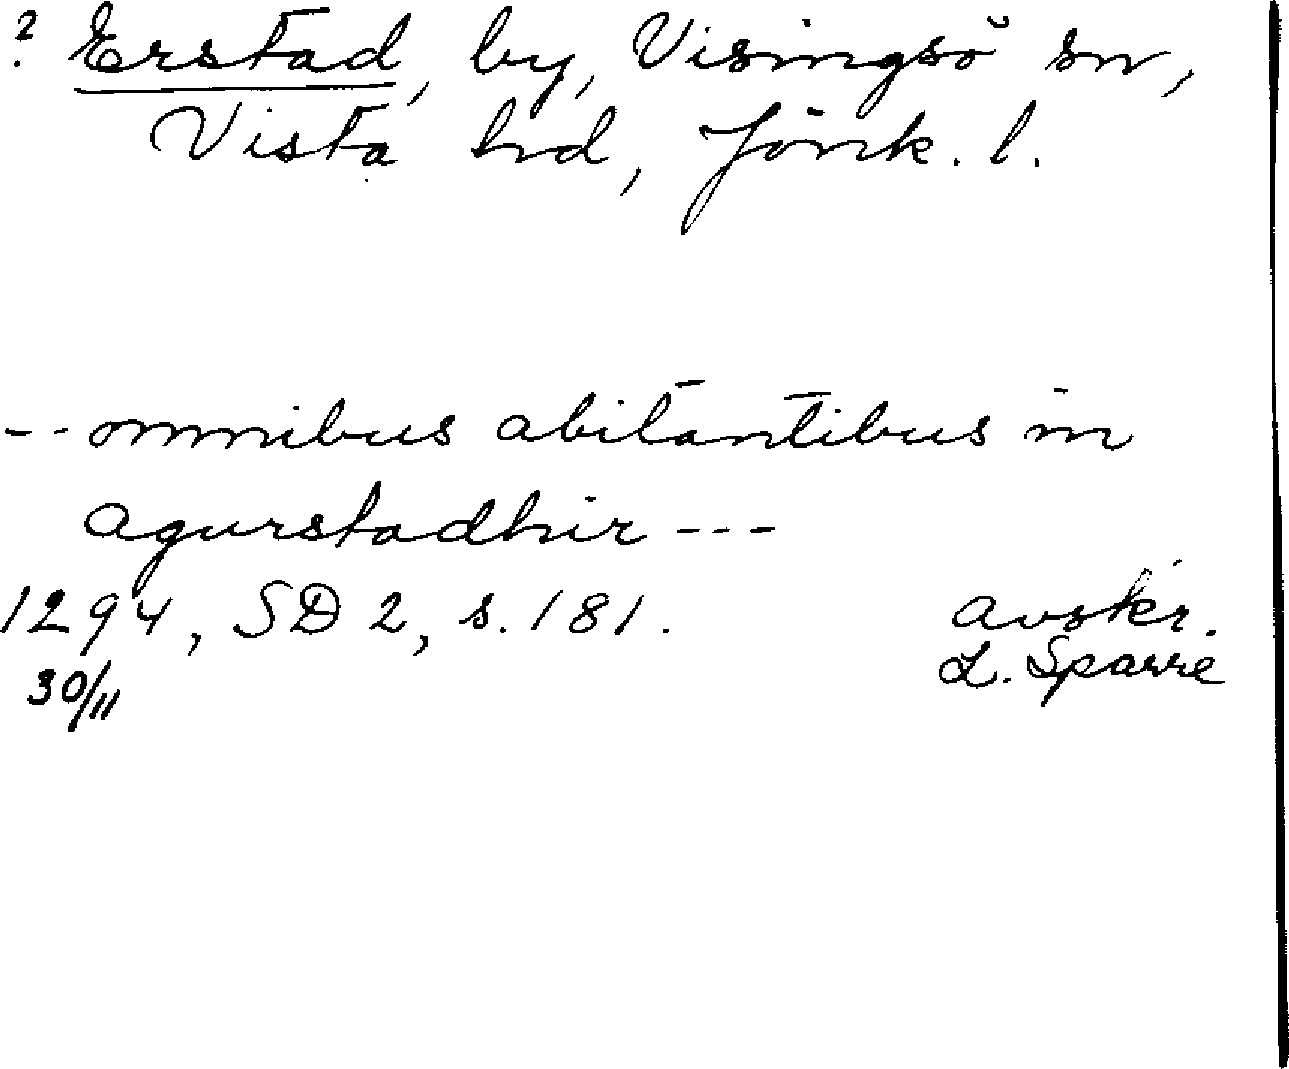 ? Erstad, by, Visingsö sn,
Vista hd, Jönk. l.
-- omnibus abitantibus in
agurstadhir ---
1294, SD 2, s. 181.
30/11
avskr.
L. Sparre